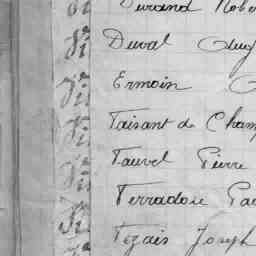 Durand Rober
Duval Aug
Ermoin
Faisant de Cham
Fauvel Pierre
Ferradou Pa
Fezais Joseph